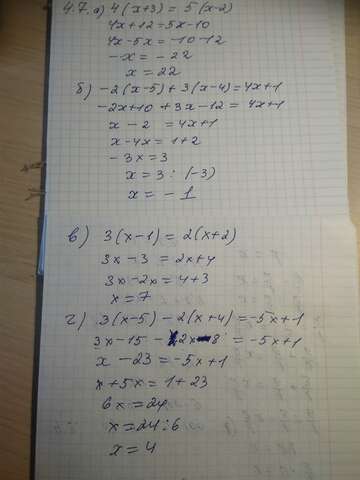 4.7. а) 4(x+3) = 5(x-2)
4x+12=5x-10
4x-5x=-10-12
-x = -22
x = 22
б) -2(x-5)+3(x-4)=4x+1
-2x+10+3x-12=4x+1
x-2 =4x+1
x-4x=1+2
-3x=3
x=3:(-3)
x = -1
в) 3(x-1)=2(x+2)
3x-3 = 2x+4
3x-2x=4+3
x=7
г) 3(x-5)-2(x+4)=-5x+1
3x-15-2x-8=-5x+1
x -23=-5x+1
x+5x=1+23
6x=24
x=24:6
x=4